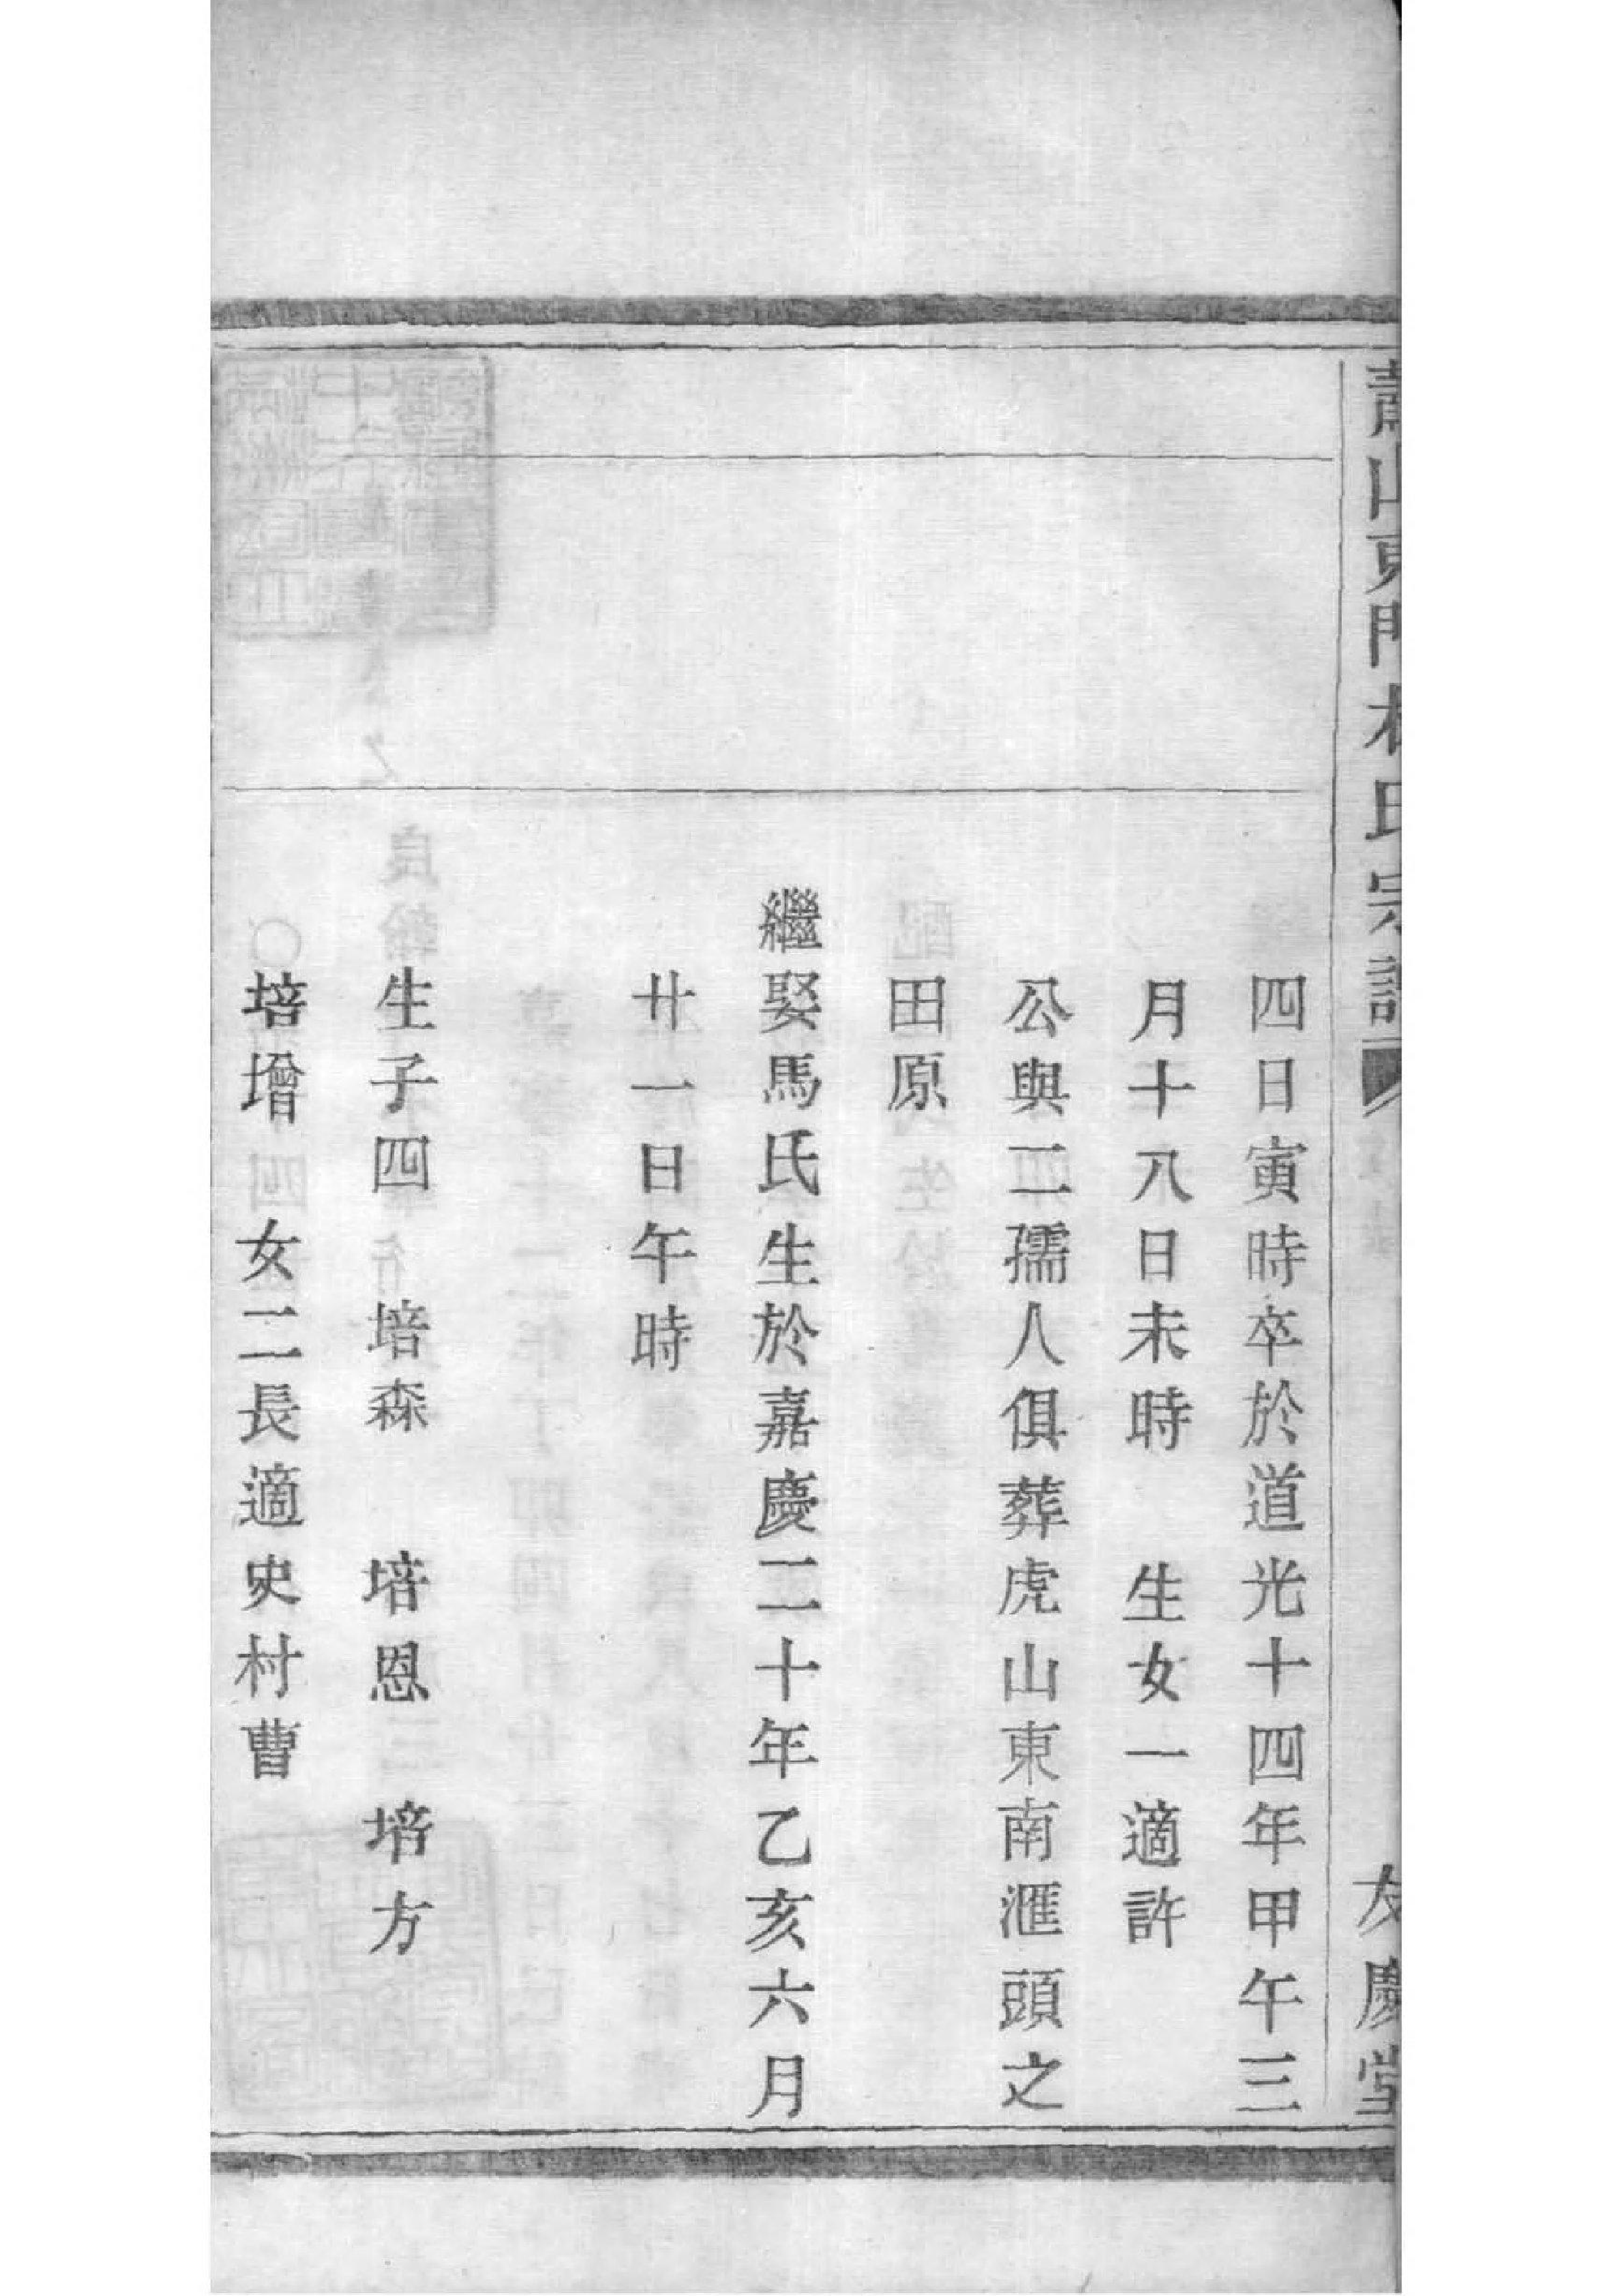 蕭山東門林氏宗譜
友慶堂
四日寅時卒於道光十四年甲午三
月十八日未時　生女一適許
公與二孺人俱葬虎山東南滙頭之
田原
繼娶馬氏生於嘉慶二十年乙亥六月
廿一日午時
生子四　培森　培恩　培方
培增　女二長適史村曹